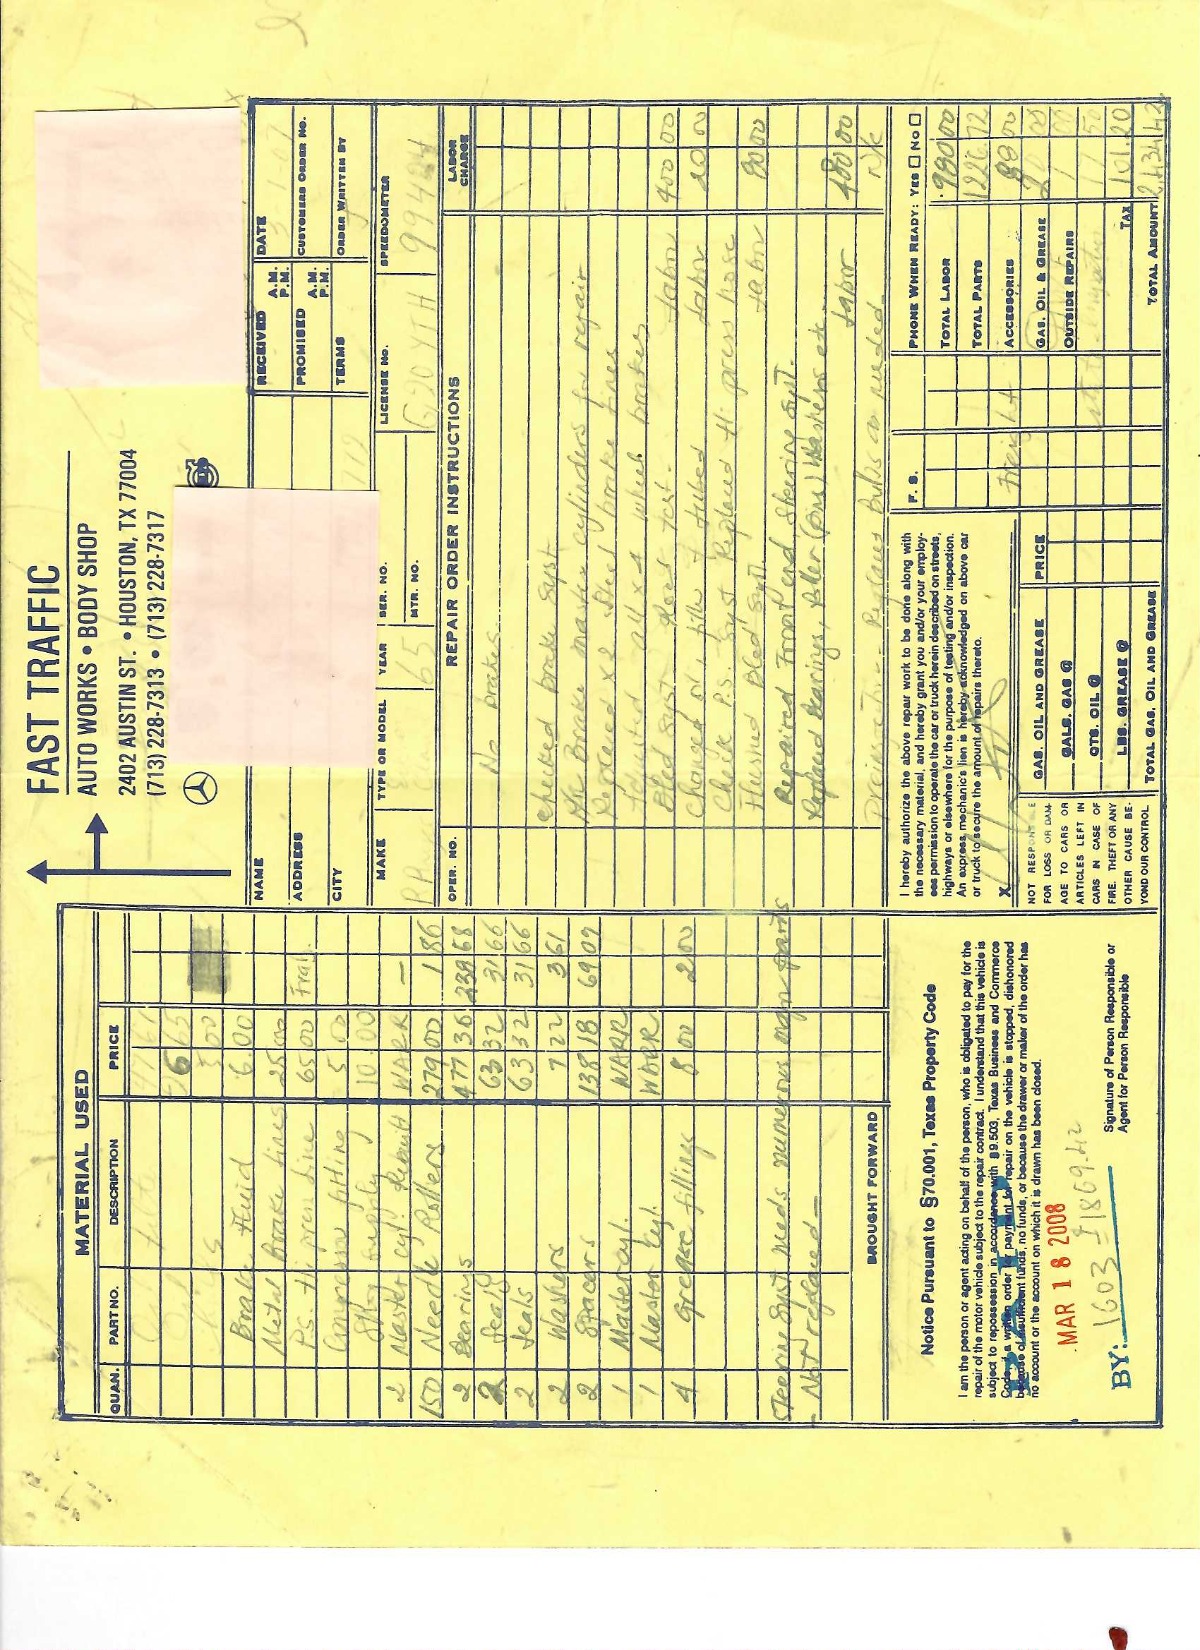 FAST TRAFFIC
AUTO WORKS • BODY SHOP
2402 AUSTIN ST. • HOUSTON, TX 77004
(713) 228-7313 • (713) 228-7317
MATERIAL USED
QUAN. PART NO. DESCRIPTION PRICE
5.00
Brake Fluid 6.00
Metal Brake lines 25.00
65.00
Compression fitting 5.00
10.00
2 Master cyl. Rebuilt WARR —
150 Needle Rollers 279.00 1 86
2 Bearings 477 36 238 68
2 Seals 63 32 31 66
2 Seals 63 32 31 66
2 Washers 7 22 3 61
2 Spacers 138 18 69 09
1 Mastercyl. WARR
1 Master Cyl. WARR
4 Grease fittings 8 00 2.00
Steering Syst needs numerous parts
Not replaced —
BROUGHT FORWARD
NAME
ADDRESS
CITY
RECEIVED A.M. P.M. DATE
PROMISED A.M. P.M. CUSTOMERS ORDER NO.
TERMS ORDER WRITTEN BY
MAKE TYPE OR MODEL YEAR SER. NO. LICENSE NO. SPEEDOMETER
65 MTR. NO. 99484
OPER. NO. REPAIR ORDER INSTRUCTIONS LABOR CHARGE
No brakes
checked brake syst
Brake master cylinders for repair
x2 Steel brake lines
Adjusted all x 4 wheel brakes
Bled syst Road test. Labor 400 00
Changed oil, filter & lubed Labor 20 00
Check P.S. Syst Replaced Hi press hose
Flushed Bled syst. Labor 80 00
Repaired Front end, Steering syst.
Replaced Bearings, Roller (pins) Washers etc.
Labor 480 00
Replaces Bulbs as needed N/C
I hereby authorize the above repair work to be done along with
the necessary material, and hereby grant you and/or your employ-
ees permission to operate the car or truck herein described on streets,
highways or elsewhere for the purpose of testing and/or inspection.
An express mechanic's lien is hereby acknowledged on above car
or truck to secure the amount of repairs thereto.
X
F. S.
freight
PHONE WHEN READY: YES ☐ NO ☐
TOTAL LABOR 980 00
TOTAL PARTS 1226 72
ACCESSORIES 88 00
GAS, OIL & GREASE
OUTSIDE REPAIRS
TAX 101.20
TOTAL AMOUNT 2434 42
NOT RESPONSIBLE
FOR LOSS OR DAM-
AGE TO CARS OR
ARTICLES LEFT IN
CARS IN CASE OF
FIRE, THEFT OR ANY
OTHER CAUSE BE-
YOND OUR CONTROL
GAS, OIL AND GREASE PRICE
GALS. GAS @
QTS. OIL @
LBS. GREASE @
TOTAL GAS, OIL AND GREASE
Notice Pursuant to §70.001, Texas Property Code
I am the person or agent acting on behalf of the person, who is obligated to pay for the
repair of the motor vehicle subject to the repair contract. I understand that this vehicle is
subject to repossession in accordance with §9.503, Texas Business and Commerce
Code, if a written order for payment for repair on the vehicle is stopped, dishonored
because of insufficient funds, no funds, or because the drawer or maker of the order has
no account or the account on which it is drawn has been closed.
MAR 18 2008
BY: 1603 $1869.42
Signature of Person Responsible or
Agent for Person Responsible